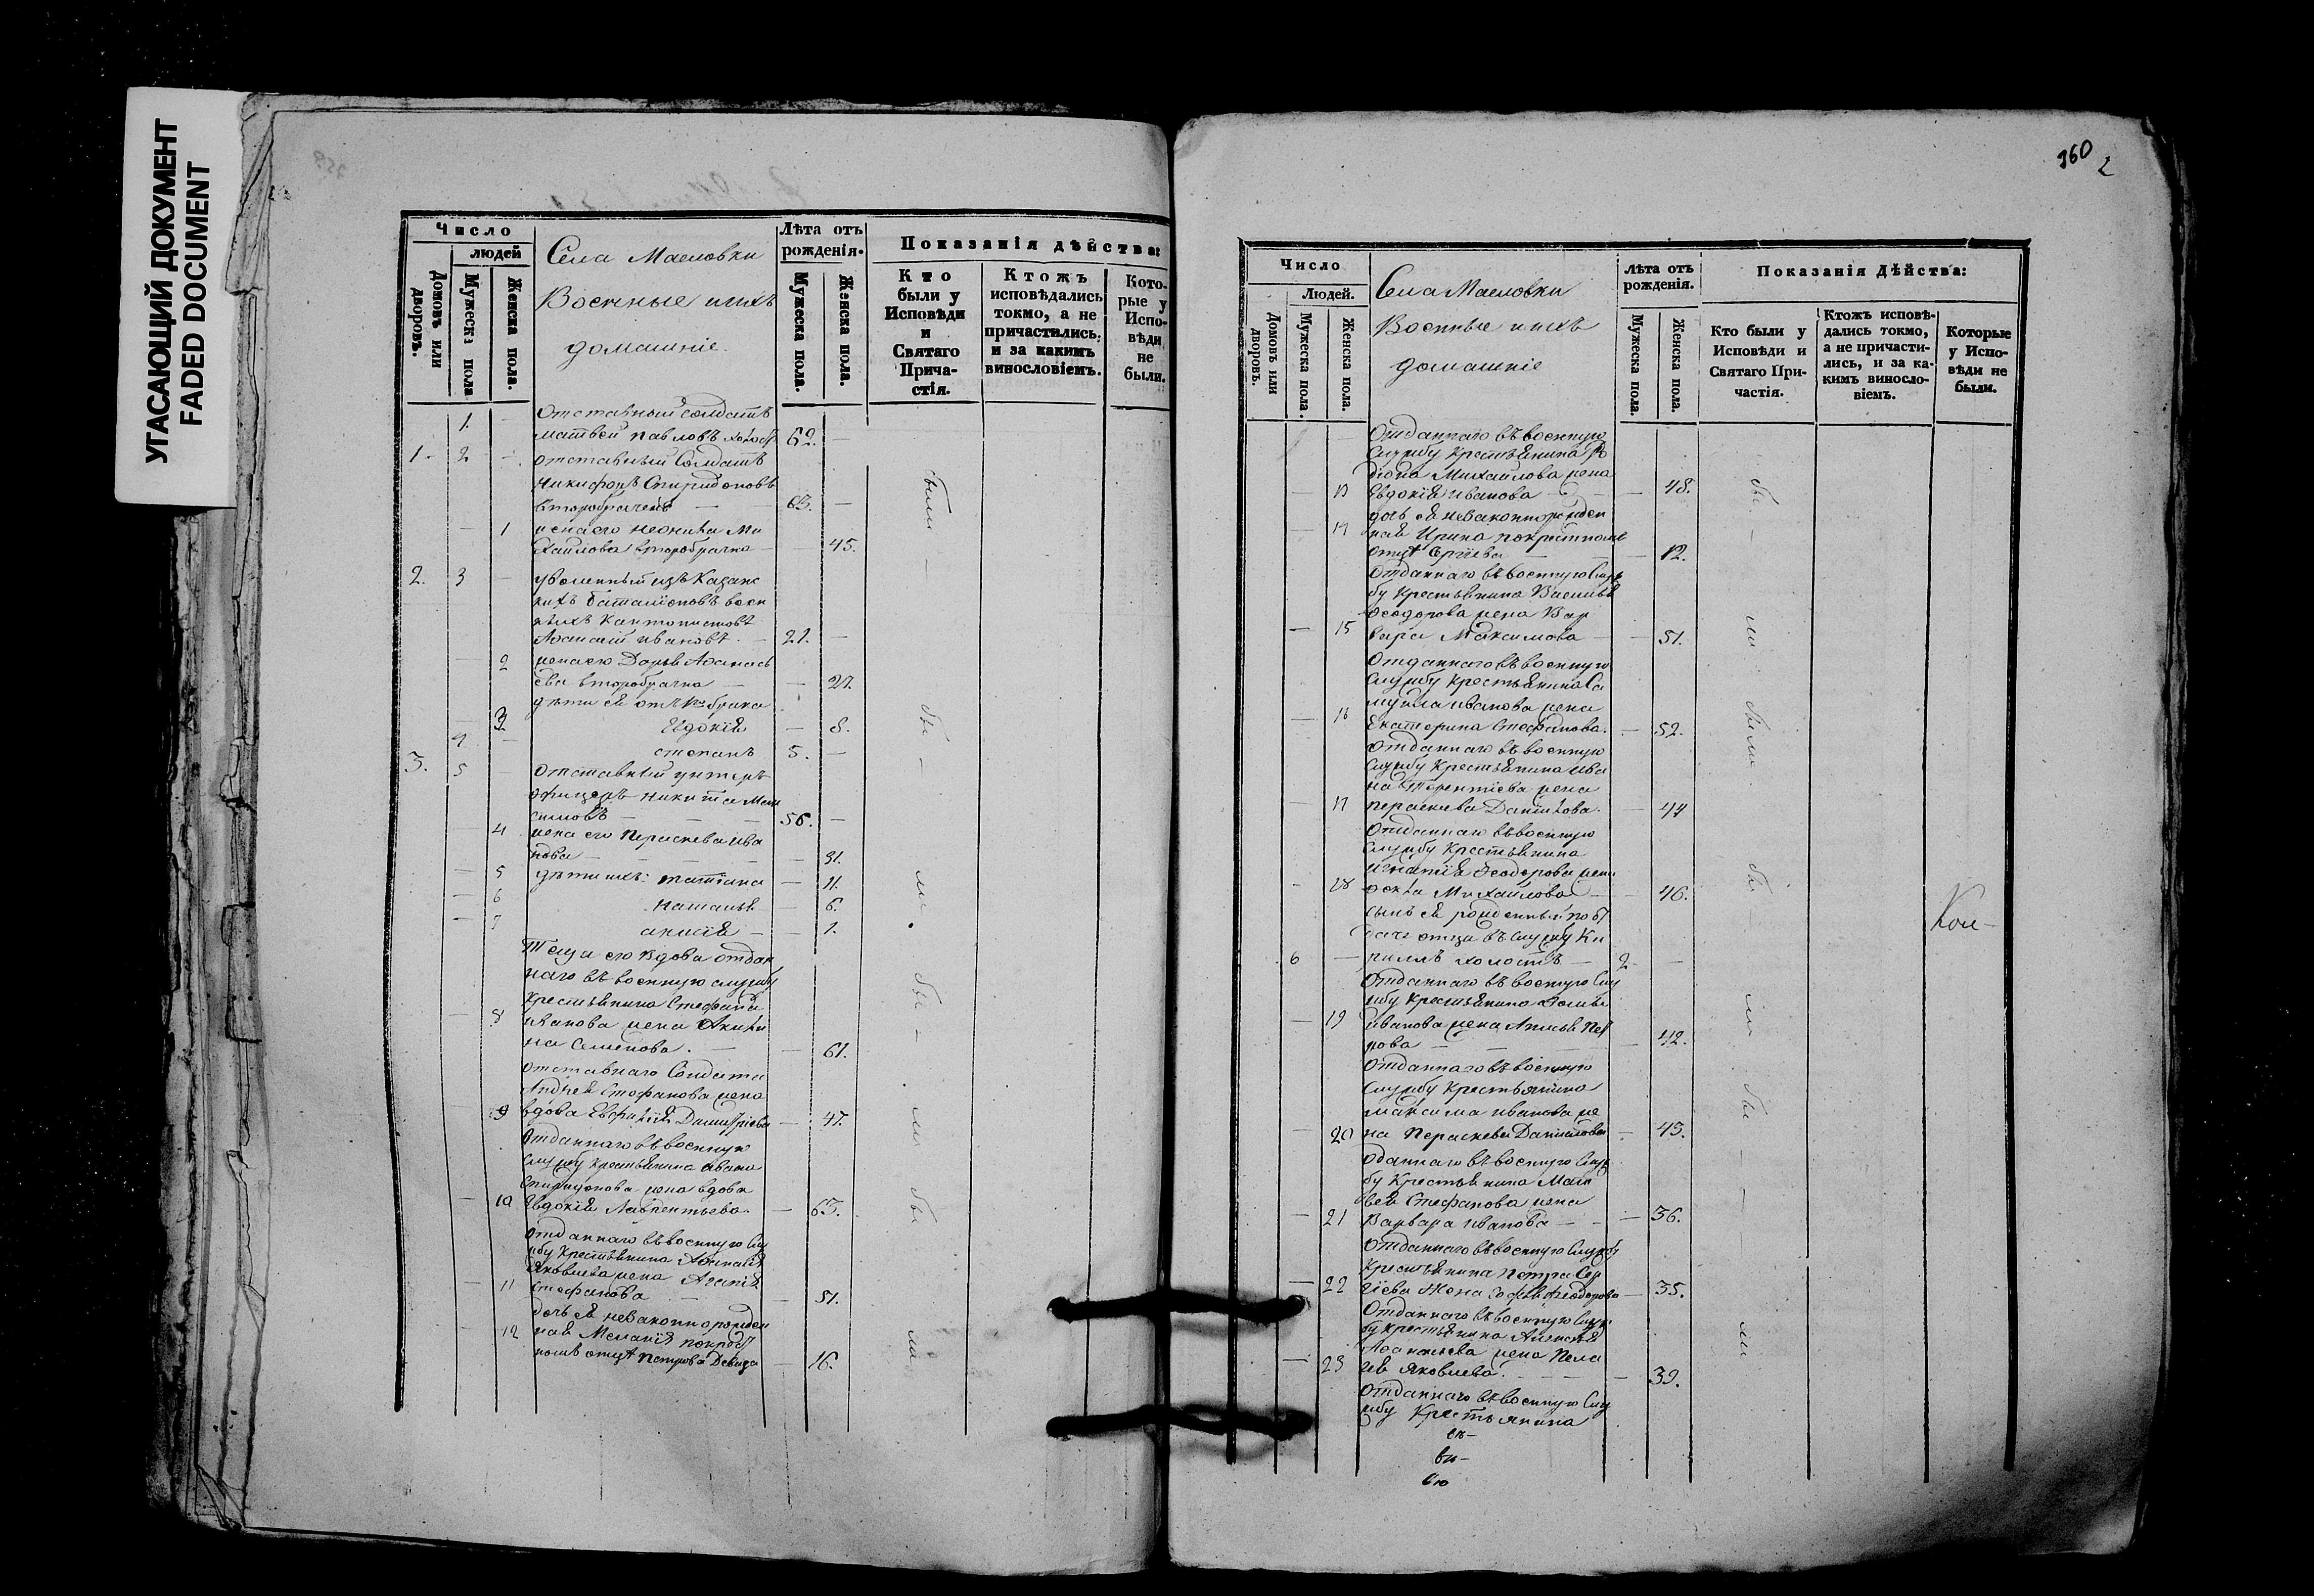 УГАСАЮЩИЙ ДОКУМЕНТ
FADED DOCUMENT
Число
людей
Домовъ или дворовъ.
Мужеска пола
Женска пола.
Села Масловки
Военные ихъ
домашніе.
Лѣта отъ рожденія.
Мужеска пола.
Женска пола.
Показанія дѣйства:
Кто были у Исповѣди и Святаго Прича-стія.
Ктожъ исповѣдались токмо, а не причастились, и за какимъ винословіемъ.
Кото-рые у Испо-вѣди не были.
1. Отставный солдатъ
Матвей Павловъ 62. —
1. 2 — Отставный Солдатъ
Никифоръ Спиридоновъ
второбрачный — 63. —
— 1 жена его Ми
хайлова второбрачна — 45.
2. 3 — уволенный изъ Казанс
кихъ баталіоновъ воен
ныхъ Кантонистовъ
Ивановъ. — 21. —
— 2 жена его Дарья Аѳанась
ева второбрачна — — 27.
дѣти ея отъ 1го брака
— 3 Евдокія — 8.
4 — Степанъ 5. —
3. 5 — Отставный унтеръ
офицеръ Никита Мак
симовъ — — 56. —
— 4 жена его Параскева Ива
нова — — — 31.
— 5 дѣти ихъ: Татіана — 11.
— 6 Наталья — 6.
— 7 Анисія — — 1.
Теща его вдова отдан
наго въ военную службу
Крестьянина Стефана
— 8 Иванова жена Акили
на Семенова. — — 61.
Отставнаго Солдата
Андрея Стефанова жена
9 вдова Евфимія Димитріева — 47.
Отданнаго въ военную
службу крестьянина Ивана
Спиридонова жена вдова
— 10 Евдокія Лаврентьева. — 63.
Отданнаго въ военную слу
жбу Крестьянина
Яковлева жена
— 11 Стефанова — — 51.
дочь ея незаконнорожден
— 12 ная Меланія по крест
ному отцу Петрова Девица — 16.
были — бы — ли. бы — ли бы ли
360
2
Число
Людей.
Домовъ или дворовъ.
Мужеска пола.
Женска пола.
Села Масловки
Военные ихъ
домашніе
Лѣта отъ рожденія.
Мужеска пола.
Женска пола.
Показанія Дѣйства:
Кто были у Исповѣди и Святаго При-частія.
Ктожъ исповѣ-дались токмо, а не причасти-лись, и за ка-кимъ виносло-віемъ.
Которые у Испо-вѣди не были.
Отданнаго въ военную
службу Крестьянина Ро
діона Михайлова жена
— 13 Евдокія Иванова — — 48.
дочь ея незаконнорожден
— 14 ная Ирина по крестному
отцу Сергіева — — 12.
Отданнаго въ военную служ
бу Крестьянина Василья
Ѳеодорова жена Вар
— 15 вара Максимова — — 51.
Отданнаго въ военную
службу крестьянина Са
муила Иванова жена
— 16 Екатерина Стефанова. — 52.
Отданнаго въ военную
службу Крестьянина Ива
на Терентіева жена
— 17 Параскева Данилова. — 44
Отданнаго въ военную
службу Крестьянина
Игнатія Ѳеодорова жена
— 18 Ѳекла Михайлова — 46.
сынъ ея рожденный по от
дачѣ отца въ службу Ки
6 — риллъ холостъ — 2 —
Отданнаго въ военную слу
жбу Крестьянина
— 19 Иванова жена Пет
рова — — — 42.
Отданнаго въ военную
службу Крестьянина
Максима Иванова же
— 20 на Параскева Данилова — 43.
Отданнаго въ военную служ
бу Крестьянина Мат
вея Стефанова жена
— 21 Варвара Иванова — — 36.
Отданнаго въ военную службу
Крестьянина Петра Сер
— 22 гіева Жена Софья Ѳеодорова — 35.
Отданнаго въ военную служ
бу крестьянина Алексѣя
Аѳанасьева жена Пела
— 23 гея Яковлева. — — — 39.
Отданнаго въ военную слу
жбу Крестьянина
бы — ли были. бы ли бы — — ли